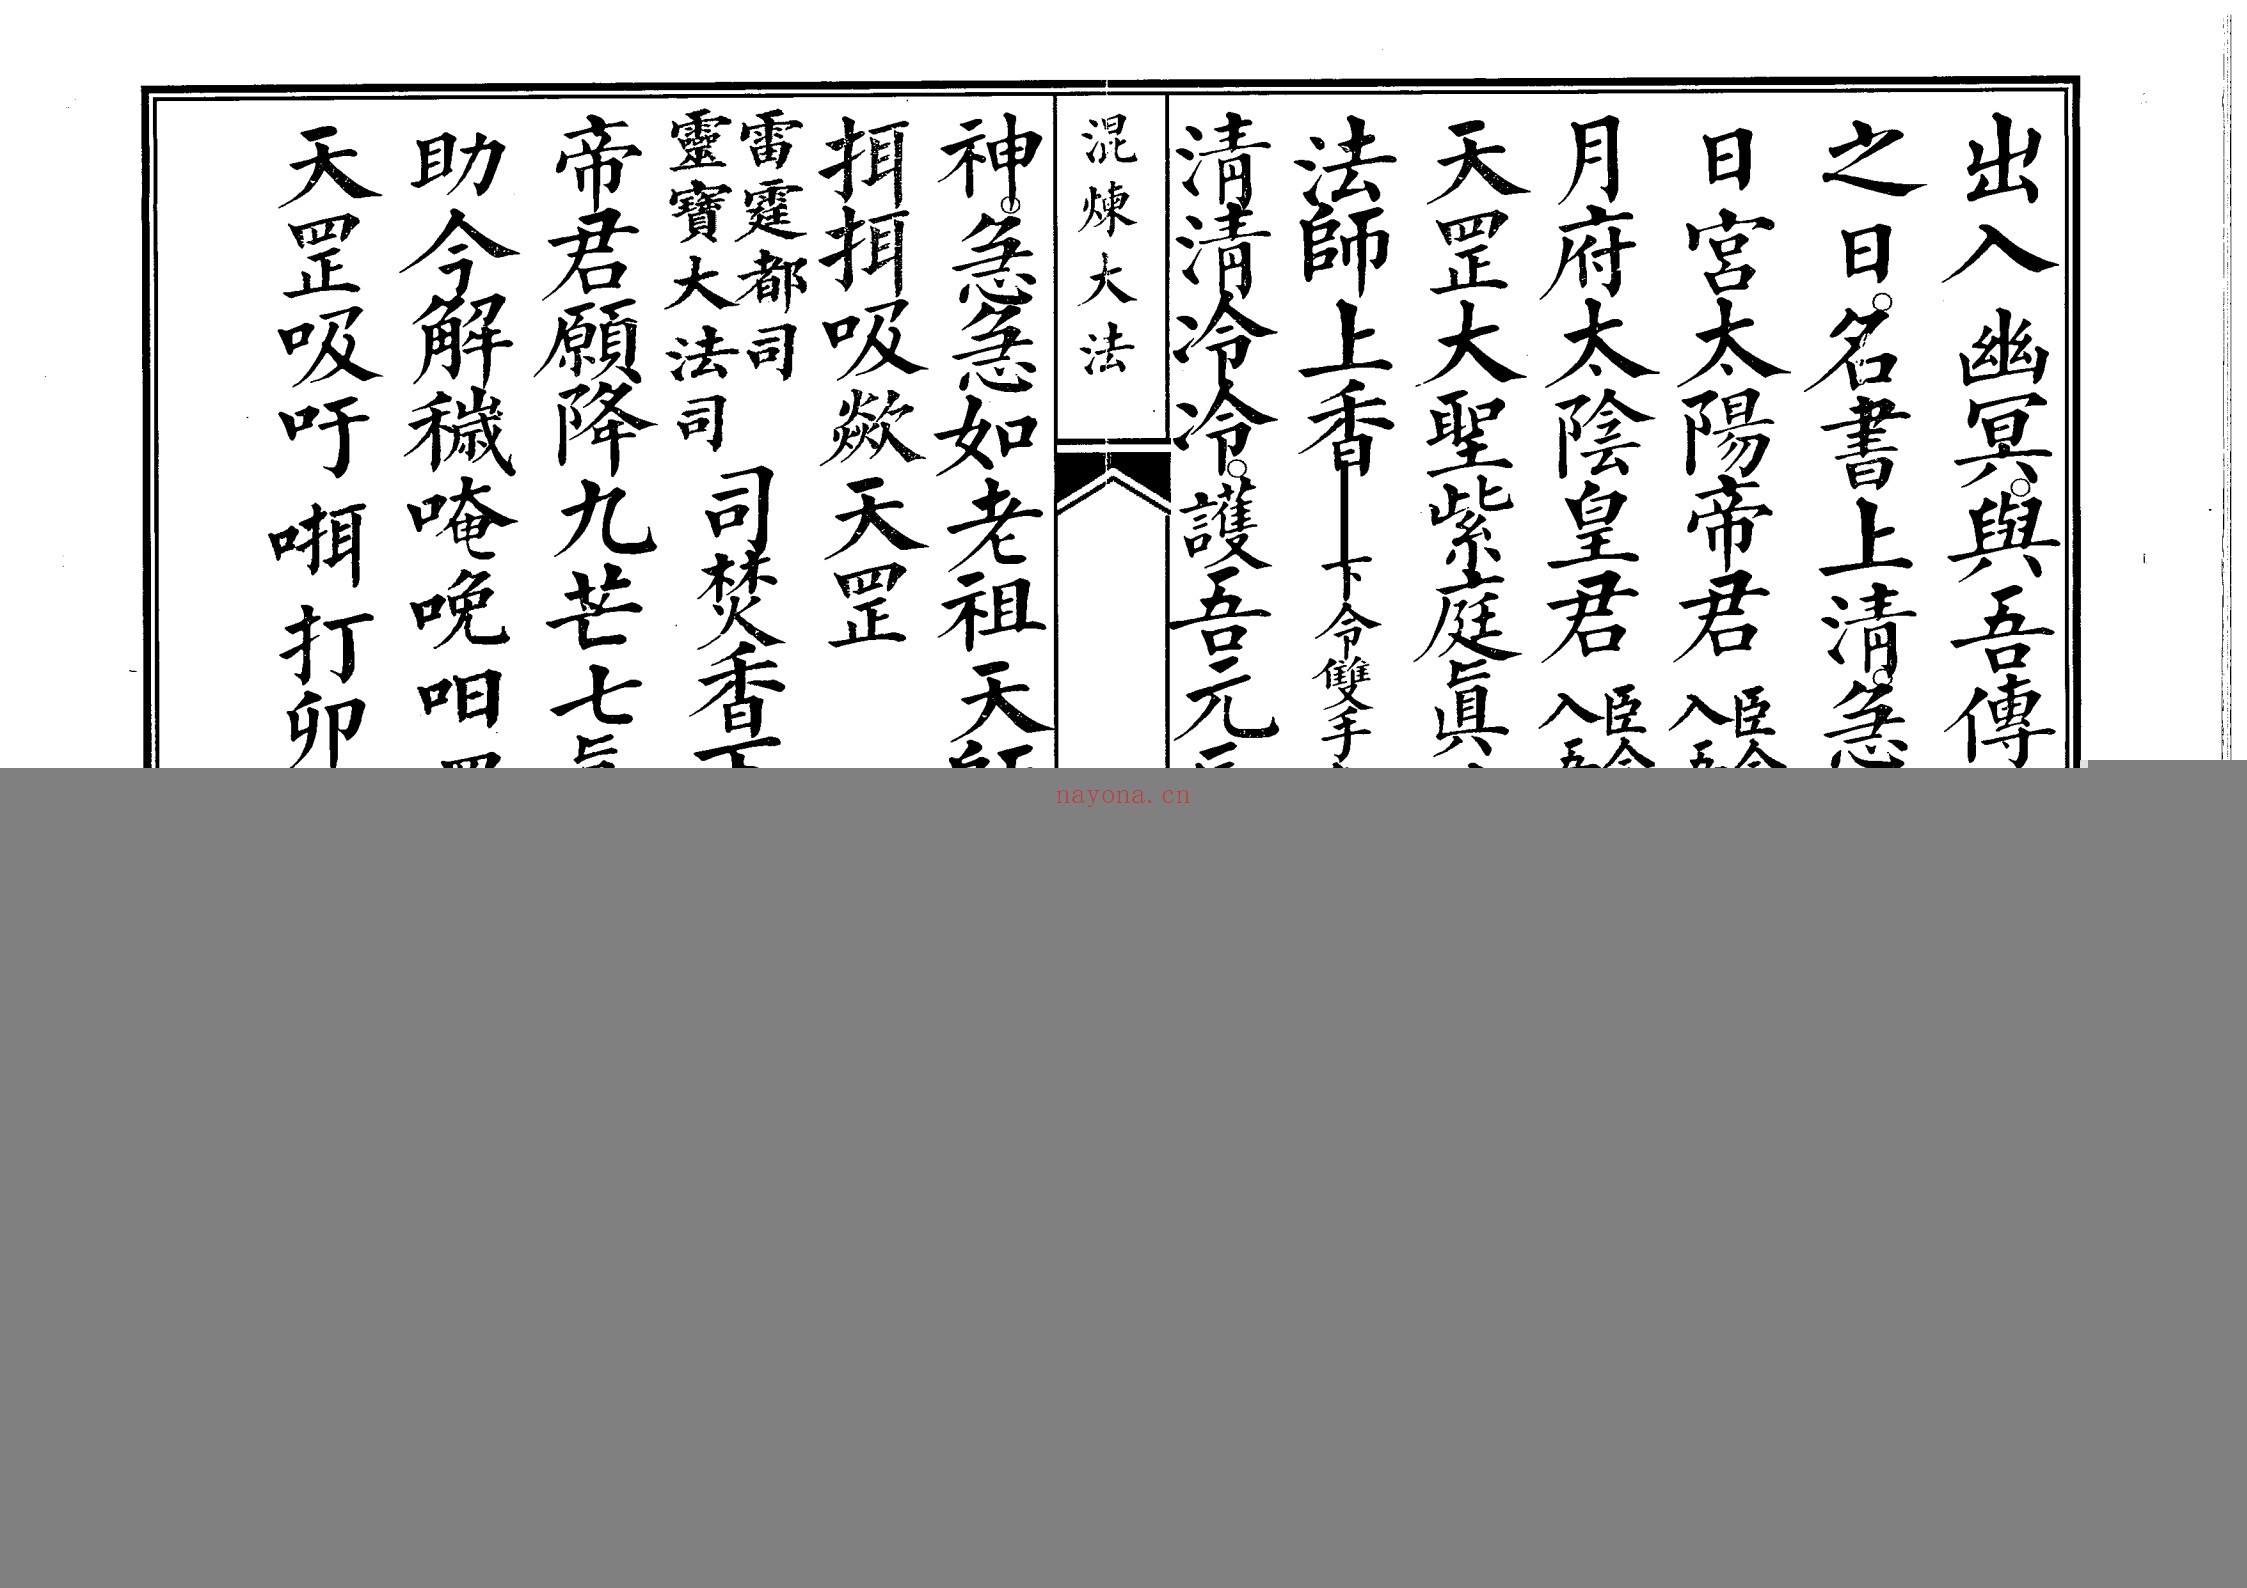 出入幽冥。與吾傳
之日。名書上清。急
日宮太陽帝君 臣入
月府太陰皇君 臣入
天罡大聖紫庭眞
法師上香 下令雙手
清清冷冷。護吾元
混煉大法
神。急急如老祖天
挕挕吸歘天罡
雷霆都司
靈寶大法司
司焚香下
帝君願降九芒七
助令解穢唵唍呬
天罡吸吘㗇打卯
nayona.cn